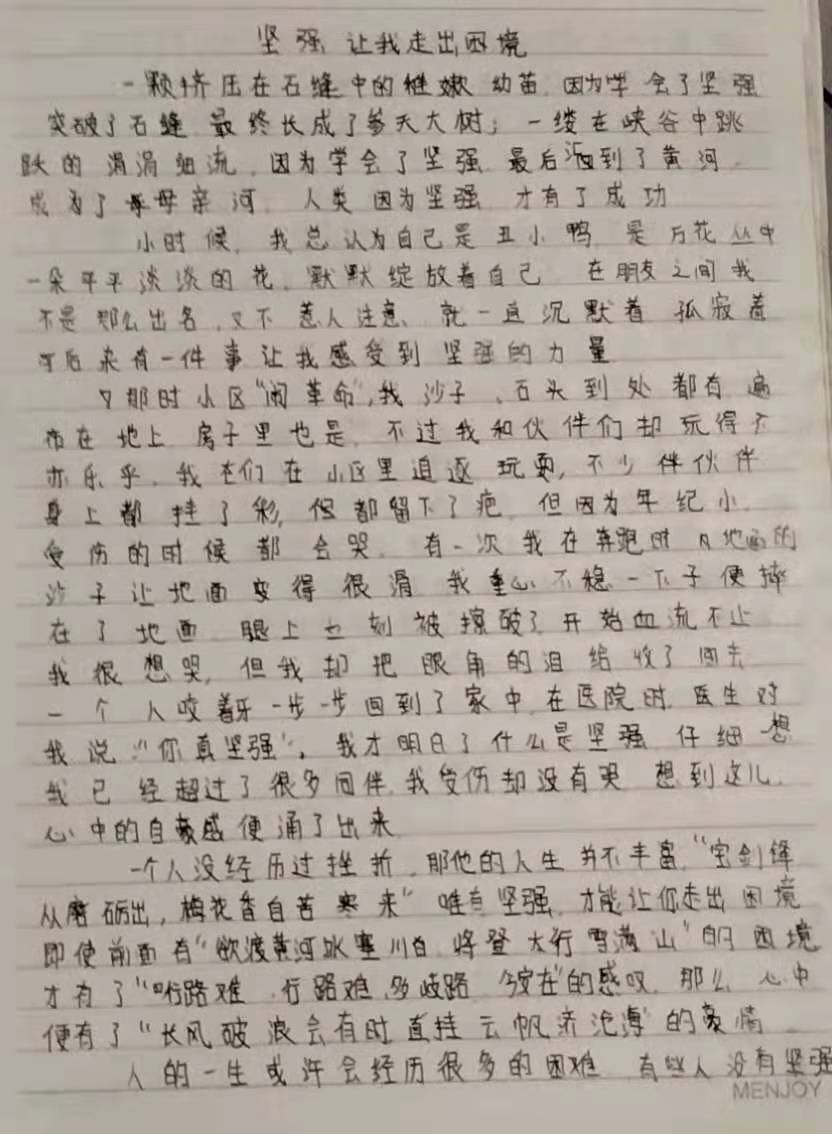 坚强 让我走出困境
一颗挤压在石缝中的稚嫩 幼苗 因为学会了坚强
突破了石缝 最终长成了参天大树; 一缕在峡谷中跳
跃的涓涓细流, 因为学会了坚强 最后汇到了黄河
成为了母亲河. 人类因为坚强 才有了成功
小时候, 我总认为自己是丑小鸭 是万花丛中
一朵平平淡淡的花, 默默绽放着自己 在朋友之间我
不是那么出名, 又不惹人注意, 就一直沉默着 孤寂着
可后来有一件事让我感受到坚强的力量
那时小区"闹革命",我 沙子、石头到处都有 遍
布在地上 房子里也是, 不过我和伙伴们却玩得不
亦乐乎, 我们在小区里追逐玩耍, 不少伙伴
身上都挂了彩, 但都留下了疤, 但因为年纪小,
受伤的时候都会哭, 有一次我在奔跑时 地面的
沙子让地面变得很滑 我重心不稳一下子便摔
在了地面 腿上立刻被擦破了开始血流不止
我很想哭, 但我却把眼角的泪给收了回去
一个人咬着牙一步一步回到了家中, 在医院时, 医生对
我说:"你真坚强", 我才明白了什么是坚强 仔细想
我已经超过了很多同伴, 我受伤却没有哭 想到这儿,
心中的自豪感便涌了出来
一个人没经历过挫折, 那他的人生并不丰富, "宝剑锋
从磨砺出, 梅花香自苦寒来" 唯有坚强, 才能让你走出困境
即使前面有"欲渡黄河冰塞川, 将登太行雪满山"的困境
才有了"行路难, 行路难, 多歧路, 今安在"的感叹, 那么, 心中
便有了"长风破浪会有时 直挂云帆济沧海"的豪情
人的一生或许会经历很多的困难 有些人没有坚强
MENJOY